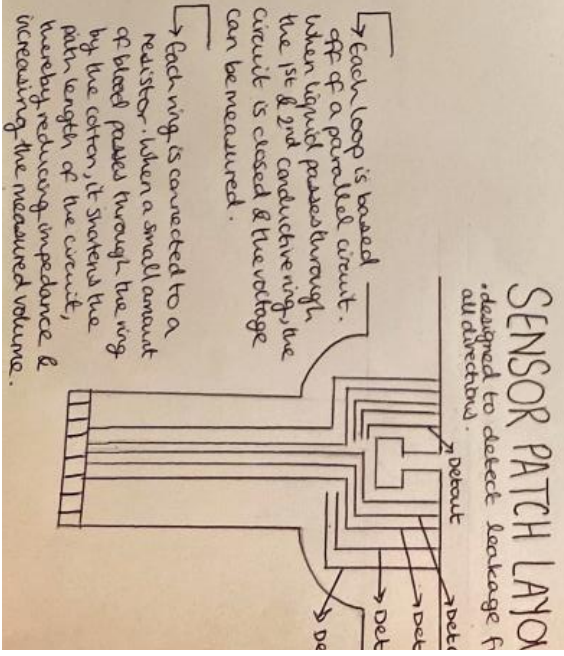 SENSOR PATCH LAYO
• designed to detect leakage f
all directions.
→ Each loop is based
off of a parallel circuit.
When liquid passes through
the 1st & 2nd conductive ring, the
circuit is closed & the voltage
can be measured.
→ Each ring is connected to a
resistor. When a small amount
of blood passes through the ring
by the cotton, it shortens the
path length of the circuit,
thereby reducing impedance &
increasing the measured volume.
Detout
Det
Det
Det
De